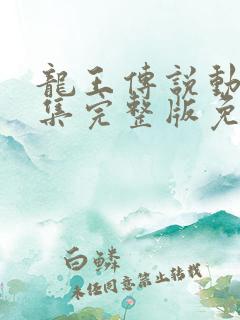 龍王傳說動
集完整版免
白鱗
未经同意禁止转载